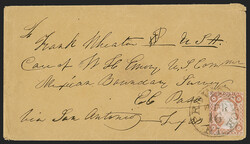 To
Frank Wheaton U.S.A.
Care of W H Emory U.S. Comm
Mexican Boundary Survey
El Paso
via San Antonio